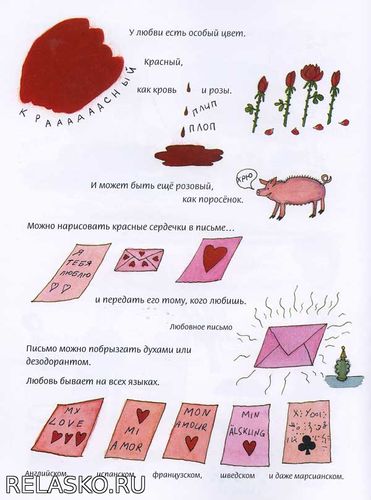 У любви есть особый цвет.
Красный,
КРААААААСНЫЙ
как кровь и розы.
ПЛИП
ПЛОП
И может быть ещё розовый,
как поросёнок.
ХРЮ
Можно нарисовать красные сердечки в письме...
Я
ТЕБЯ
ЛЮБЛЮ
и передать его тому, кого любишь.
Любовное письмо
Письмо можно побрызгать духами или
дезодорантом.
Любовь бывает на всех языках.
MY
LOVE
MI
AMOR
MON
AMOUR
MIN
ÄLSKLING
Английском, испанском, французском, шведском и даже марсианском.
RELASKO.RU